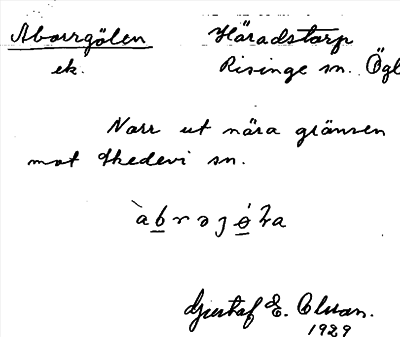 Aborrgölen Häradstorp
ek. Risinge sn. Ögl
Norr ut nära gränsen
mot Skedevi sn.
Gustaf E. Olsson.
1929